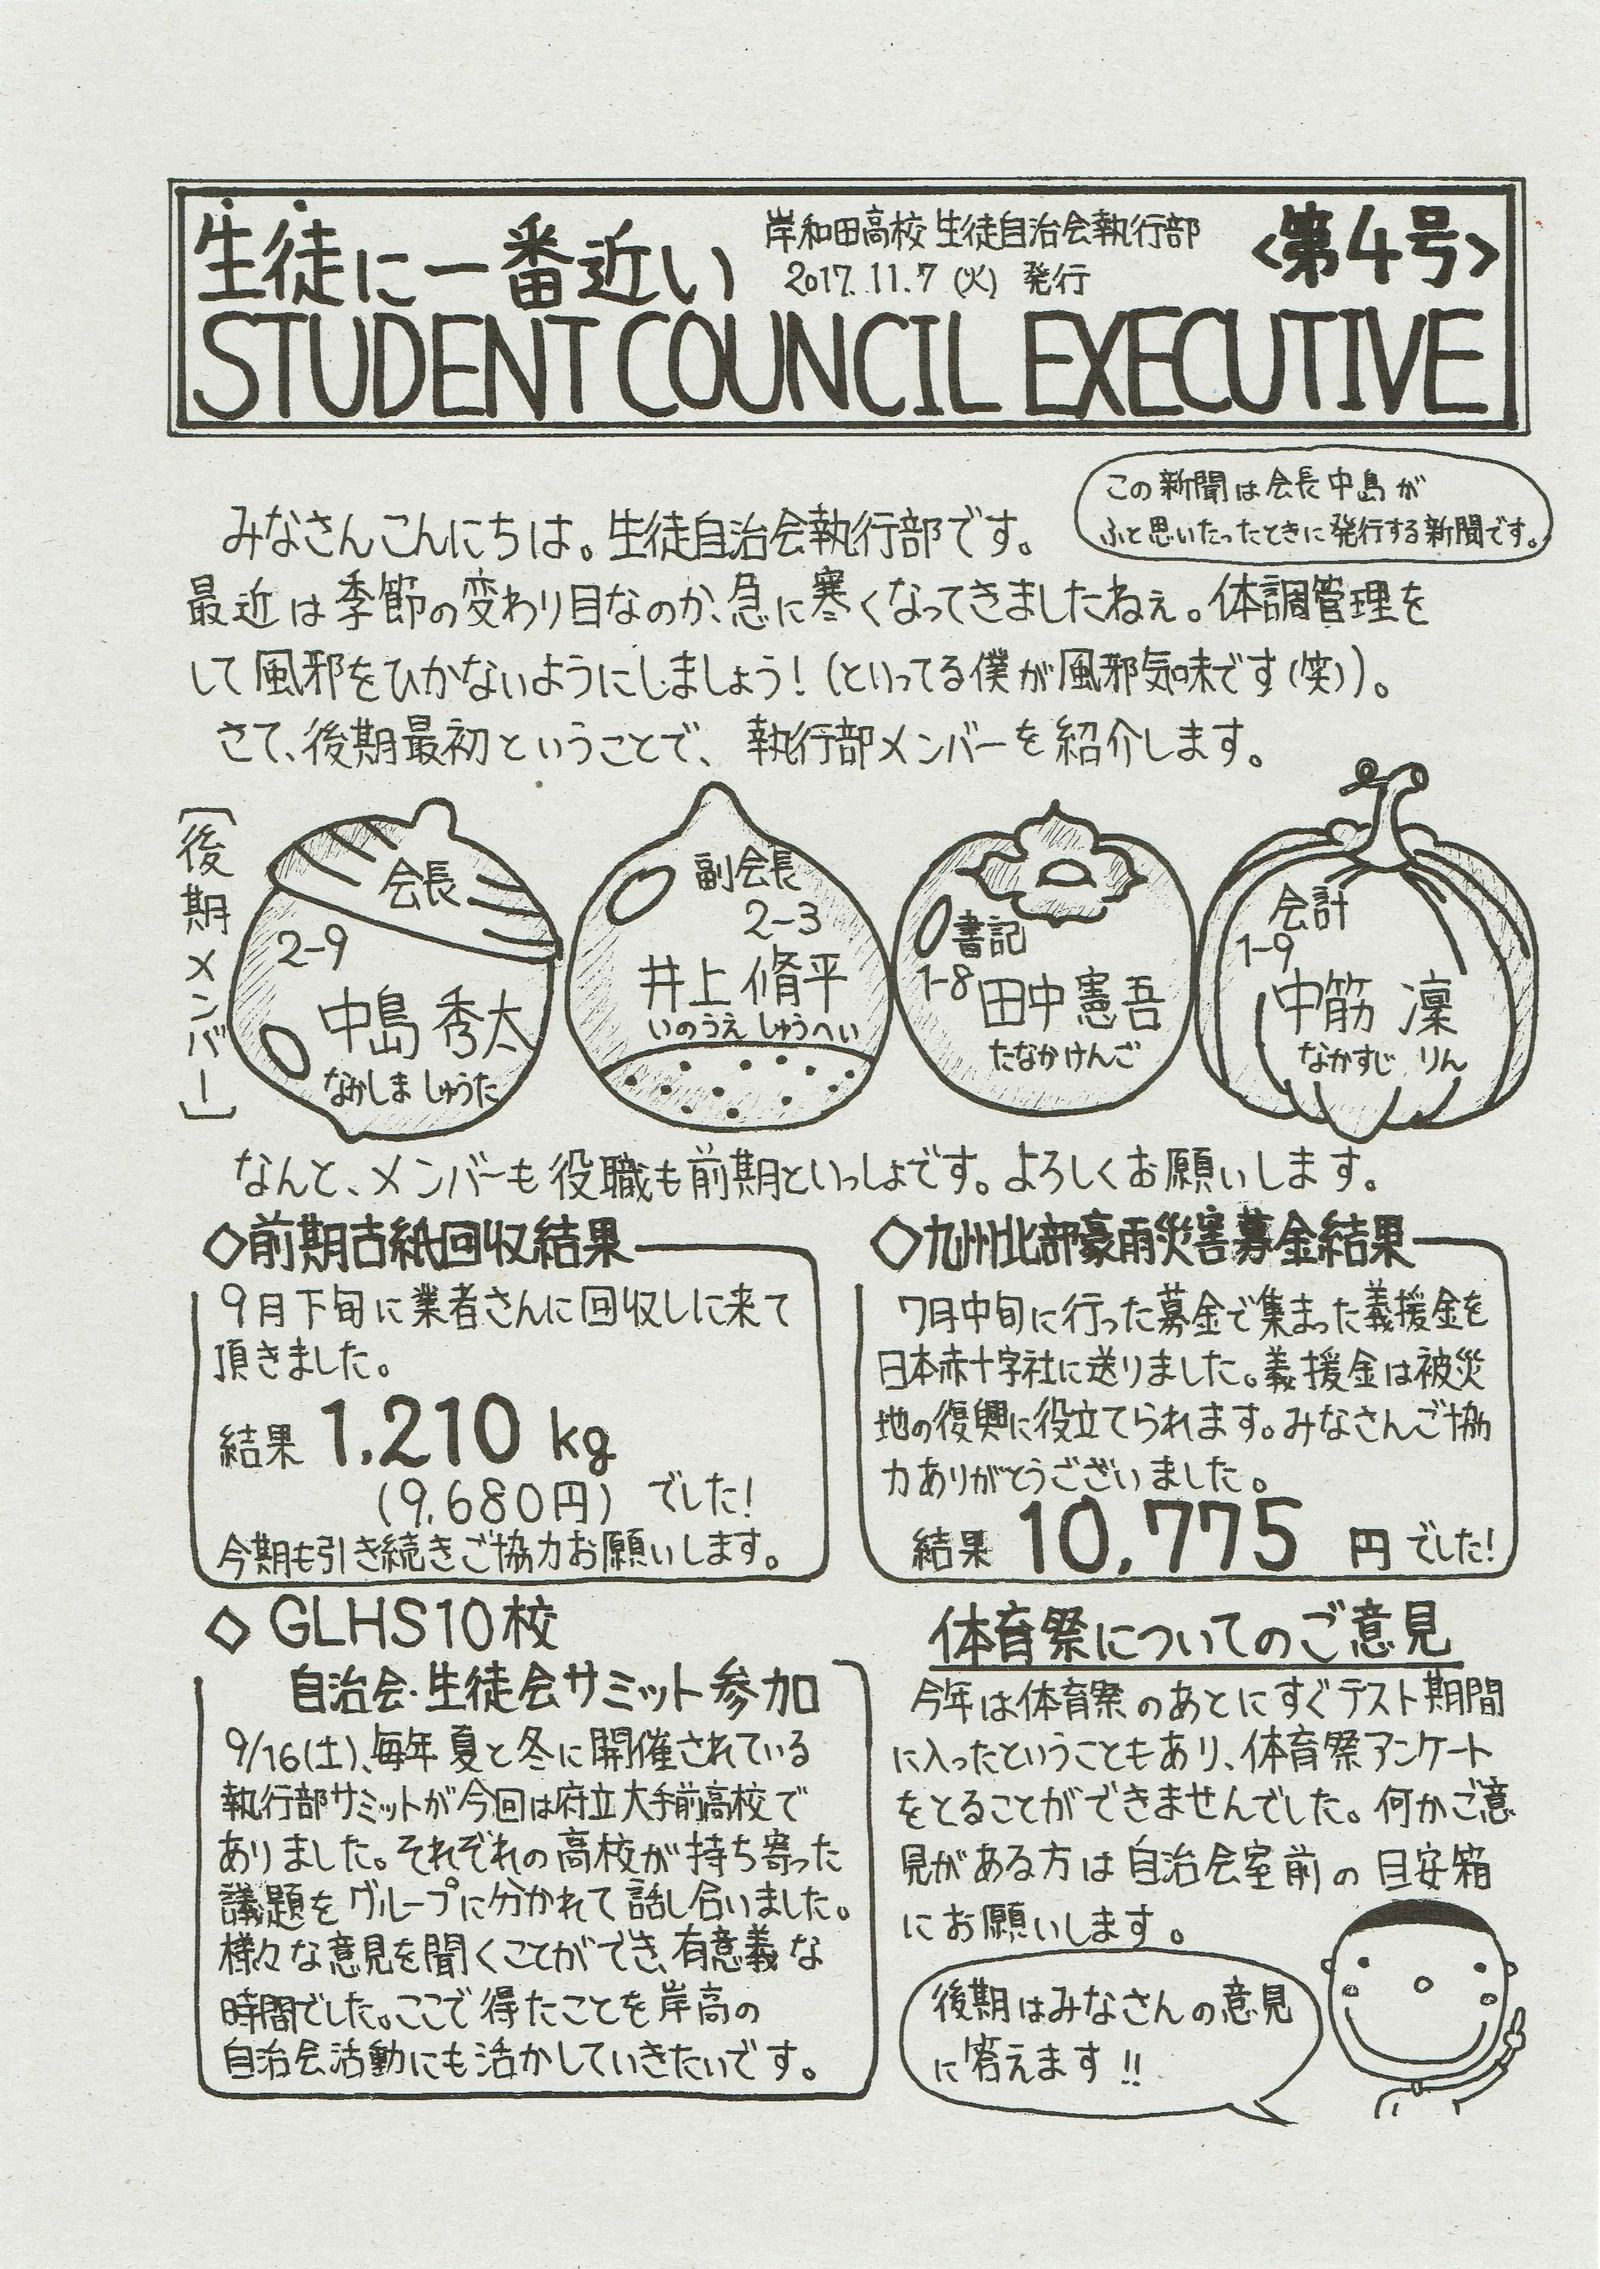 生徒に一番近い
岸和田高校 生徒自治会執行部
2017.11.7 (火) 発行
<第4号>
STUDENT COUNCIL EXECUTIVE
この新聞は会長中島が
ふと思いたったときに発行する新聞です。
みなさんこんにちは。生徒自治会執行部です。
最近は季節の変わり目なのか、急に寒くなってきましたねぇ。体調管理を
して風邪をひかないようにしましょう!(といってる僕が風邪気味です(笑))。
さて、後期最初ということで、執行部メンバーを紹介します。
[後期メンバー]
会長
2-9
中島 秀太
なかしま しゅうた
副会長
2-3
井上 脩平
いのうえ しゅうへい
書記
1-8 田中 憲吾
たなかけんご
会計
1-9
中筋 凜
なかすじ りん
なんと、メンバーも役職も前期といっしょです。よろしくお願いします。
◇前期古紙回収結果
9月下旬に業者さんに回収しに来て
頂きました。
結果 1,210 kg
(9,680円) でした!
今期も引き続きご協力お願いします。
◇九州北部豪雨災害募金結果
7月中旬に行った募金で集まった義援金を
日本赤十字社に送りました。義援金は被災
地の復興に役立てられます。みなさんご協
力ありがとうございました。
結果 10,775 円でした!
◇ GLHS10校
自治会・生徒会サミット参加
9/16(土)、毎年夏と冬に開催されている
執行部サミットが今回は府立大手前高校で
ありました。それぞれの高校が持ち寄った
議題をグループに分かれて話し合いました。
様々な意見を聞くことができ、有意義な
時間でした。ここで得たことを岸高の
自治会活動にも活かしていきたいです。
体育祭についてのご意見
今年は体育祭のあとにすぐテスト期間
に入ったということもあり、体育祭アンケート
をとることができませんでした。何かご意
見がある方は自治会室前の目安箱
にお願いします。
後期はみなさんの意見
に答えます!!